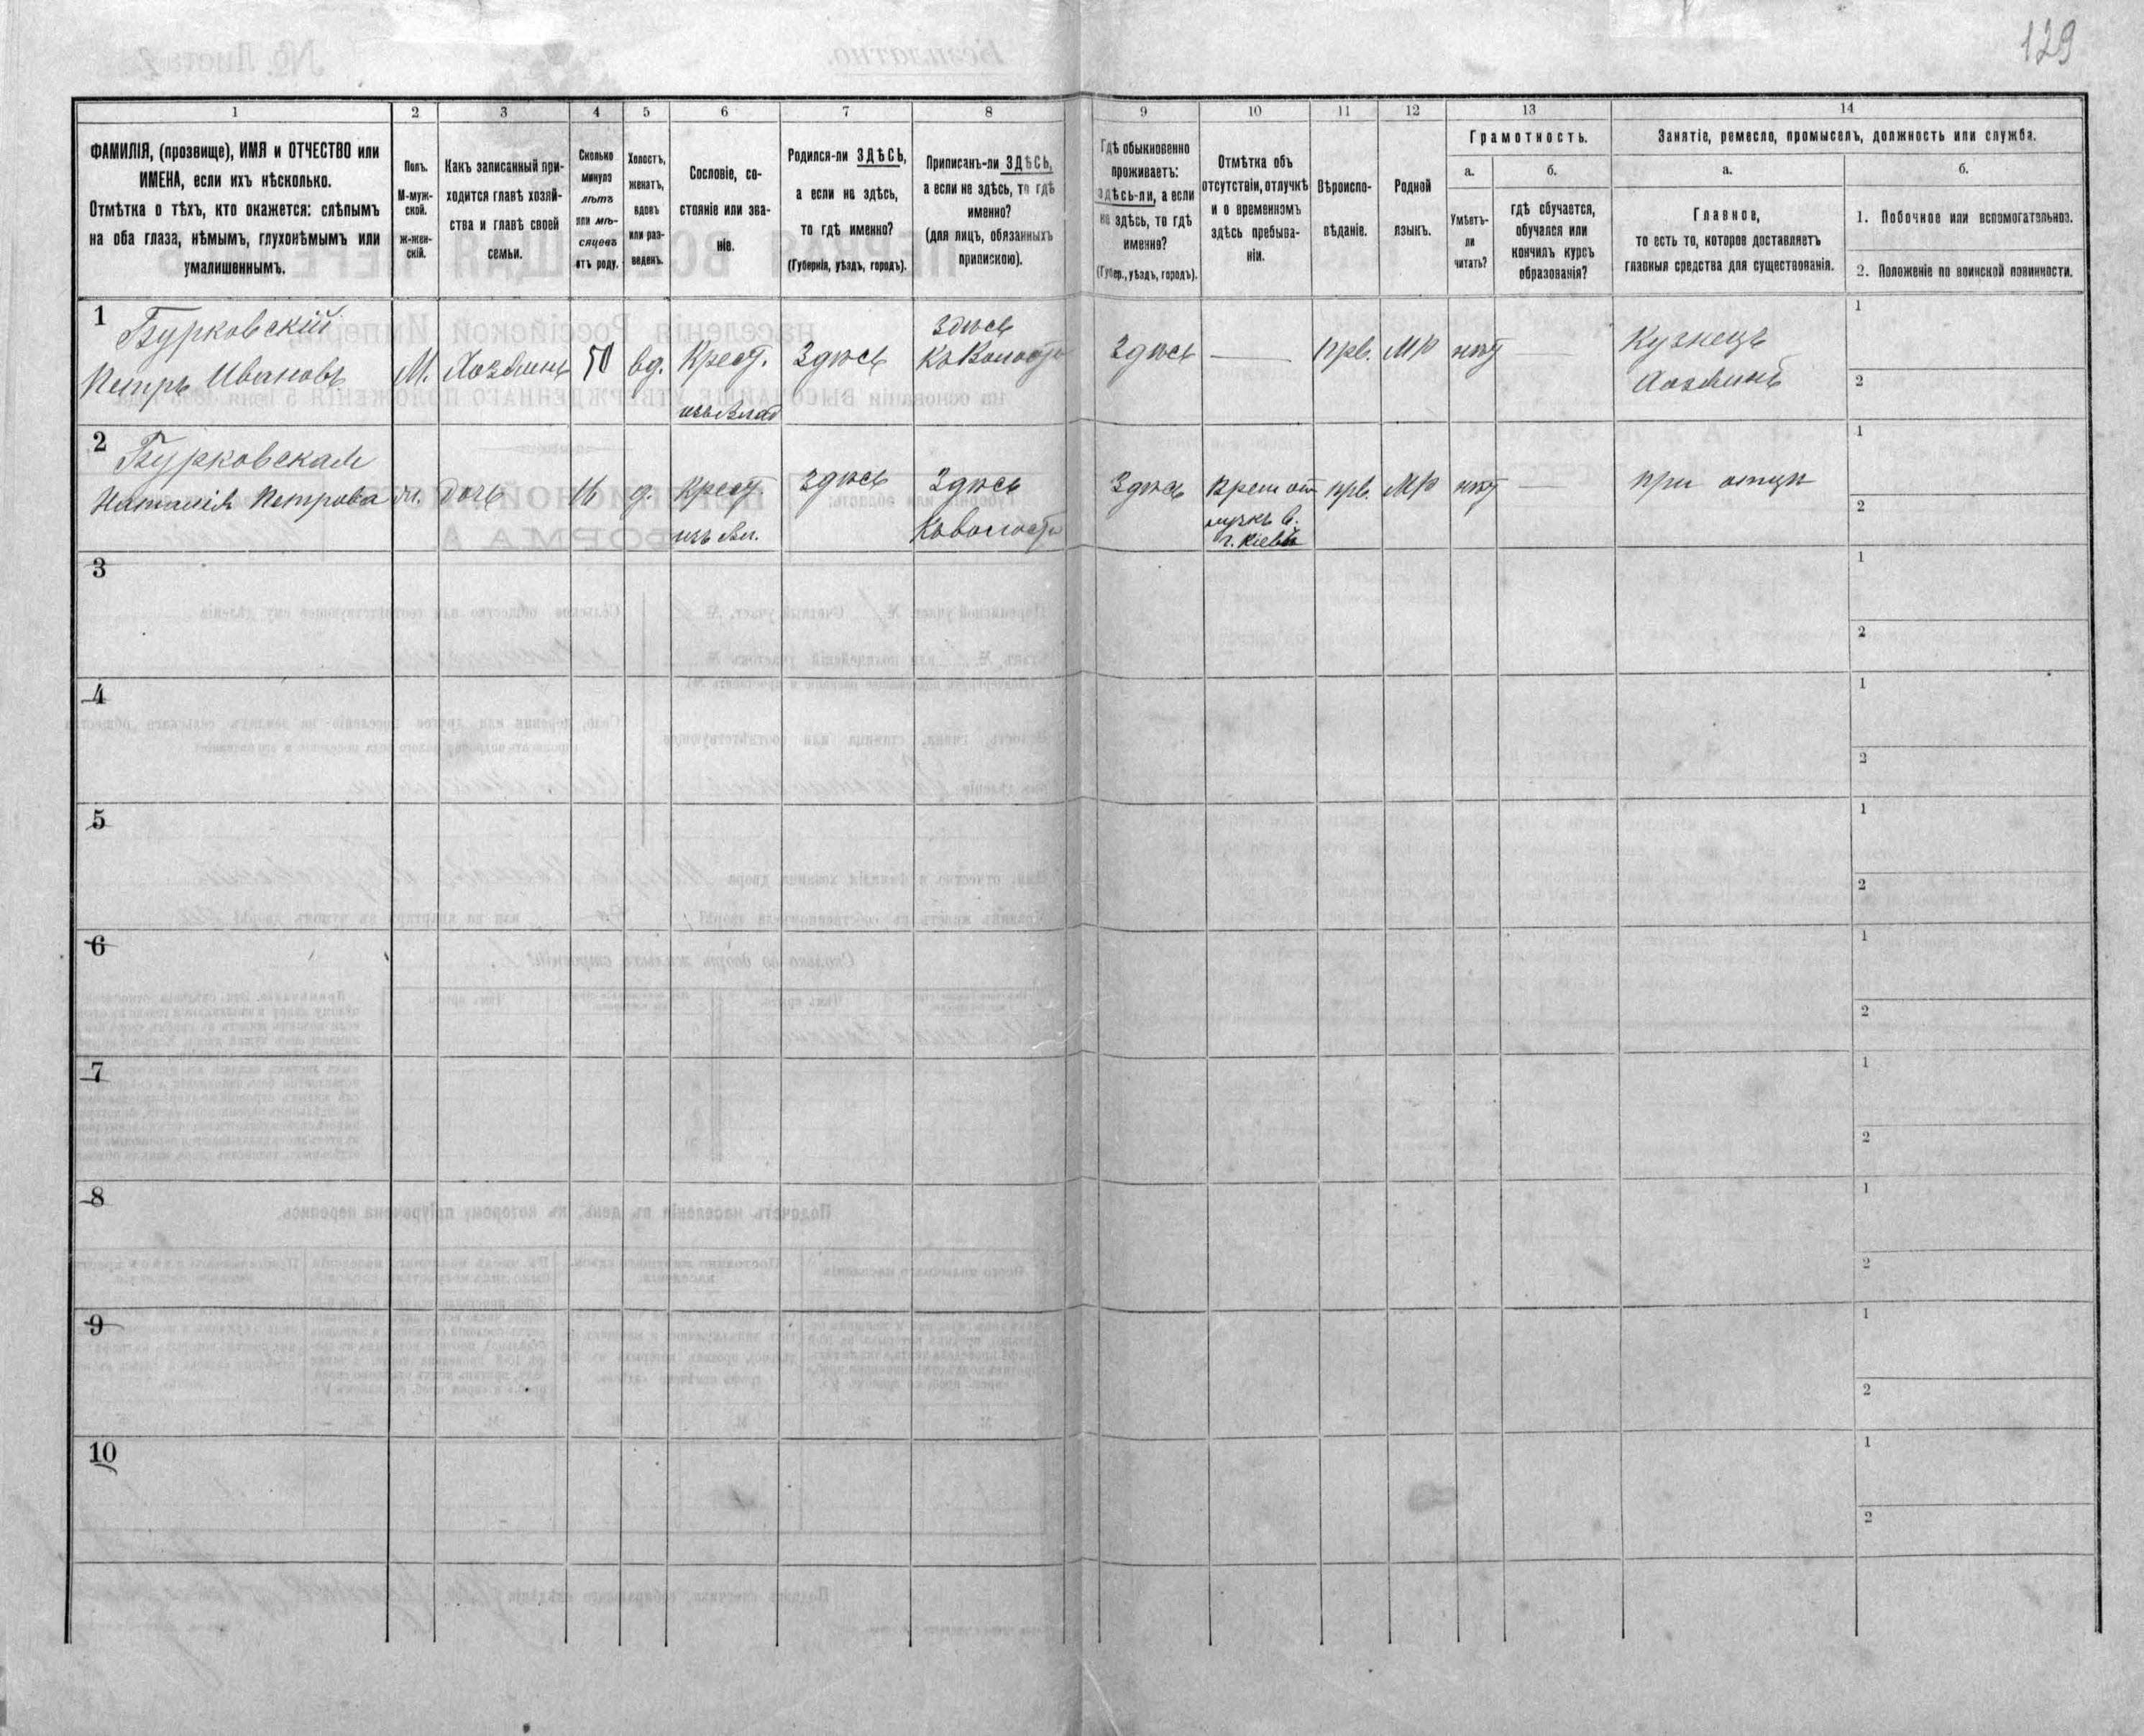 129
1
2
3
4
5
6
7
8
9
10
11
12
13
14
ФАМИЛІЯ, (прозвище), ИМЯ и ОТЧЕСТВО или
ИМЕНА, если ихъ нѣсколько.
Отмѣтка о тѣхъ, кто окажется: слѣпымъ
на оба глаза, нѣмымъ, глухонѣмымъ или
умалишеннымъ.
Полъ.
М-муж-
ской.
ж-жен-
скій.
Какъ записанный при-
ходится главѣ хозяй-
ства и главѣ своей
семьи.
Сколько
минуло
лѣтъ
или мѣ-
сяцевъ
отъ роду.
Холостъ,
женатъ,
вдовъ
или раз-
веденъ.
Сословіе, со-
стояніе или зва-
ніе.
Родился-ли ЗДѢСЬ,
а если не здѣсь,
то гдѣ именно?
(Губернія, уѣздъ, городъ).
Приписанъ-ли ЗДѢСЬ,
а если не здѣсь, то гдѣ
именно?
(для лицъ, обязанныхъ
припискою).
Гдѣ обыкновенно
проживаетъ:
здѣсь-ли, а если
не здѣсь, то гдѣ
именно?
(Губер., уѣздъ, городъ).
Отмѣтка объ
отсутствіи, отлучкѣ
и о временномъ
здѣсь пребыва-
ніи.
Вѣроиспо-
вѣданіе.
Родной
языкъ.
Грамотность.
а.
б.
Умѣетъ-
ли
читать?
гдѣ обучается,
обучался или
кончилъ курсъ
образованія?
Занятіе, ремесло, промыселъ, должность или служба.
а.
б.
Главное,
то есть то, которое доставляетъ
главныя средства для существованія.
1. Побочное или вспомогательное.
2. Положеніе по воинской повинности.
1
Бурковскій
Петръ Ивановъ
М.
Хозяинъ
50
вд.
Крест.
изъ Влад
Здѣсь
здѣсь
Къ Волости
Здѣсь
—
прв.
Мр
нѣт
Кузнецъ
Хозяинъ
1
2
2
Бурковская
Наталія Петрова
дочь
16
д.
Крест.
изъ Вл.
Здѣсь
Здѣсь
Къ волости
Здѣсь
Врем от
лучкѣ в.
г. Кіевѣ
прв.
Мр
нѣт
—
при отцѣ
1
2
3
1
2
4
1
2
5
1
2
6
1
2
7
1
2
8
1
2
9
1
2
10
1
2